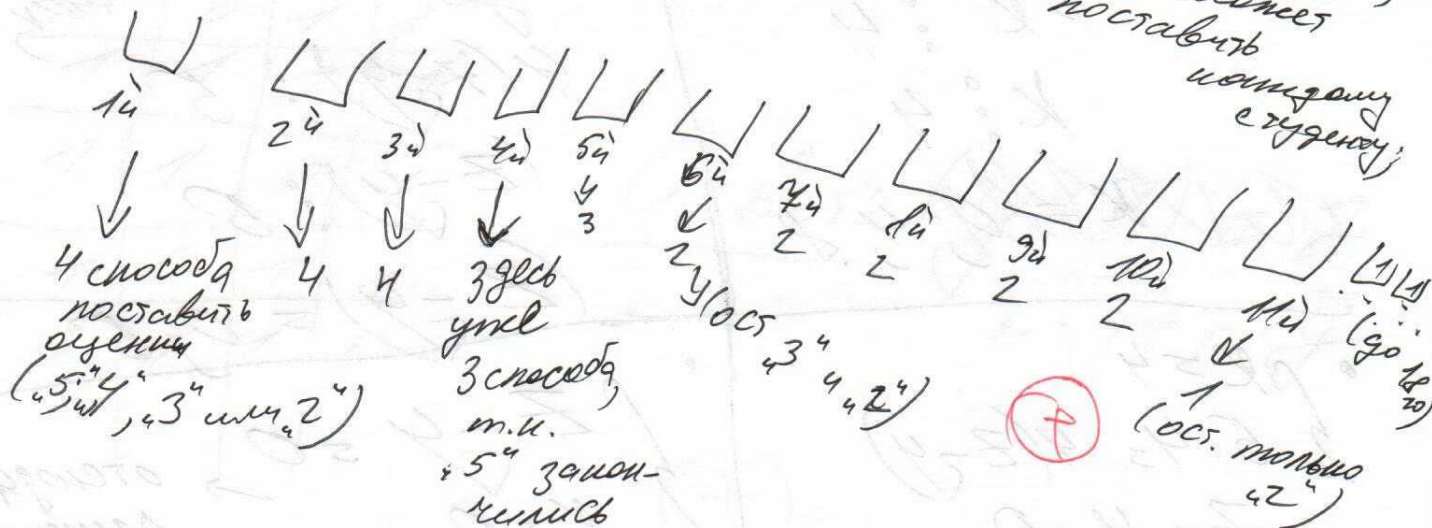 поставить
каждому
студенту;
1й 2й 3й 4й 5й 6й 7й 8й 9й 10й 11й
4 способа
поставить
оценки
("5", "4", "3" или "2")
4 4
здесь
уже
3 способа,
т.к.
"5" закон-
чились
3
2 2 2 2 2
(ост "3" и "2")
1
(ост. только
"2")
1 1
(до 18